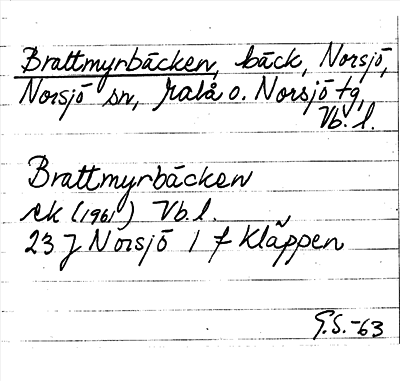 Brattmyrbäcken, bäck, Norsjö,
Norsjö sn, Malå o. Norsjö tg,
Vb. l.
Brattmyrbäcken
ek (1961) Vb. l.
23 J Norsjö 1 f Kläppen
G.S.-63